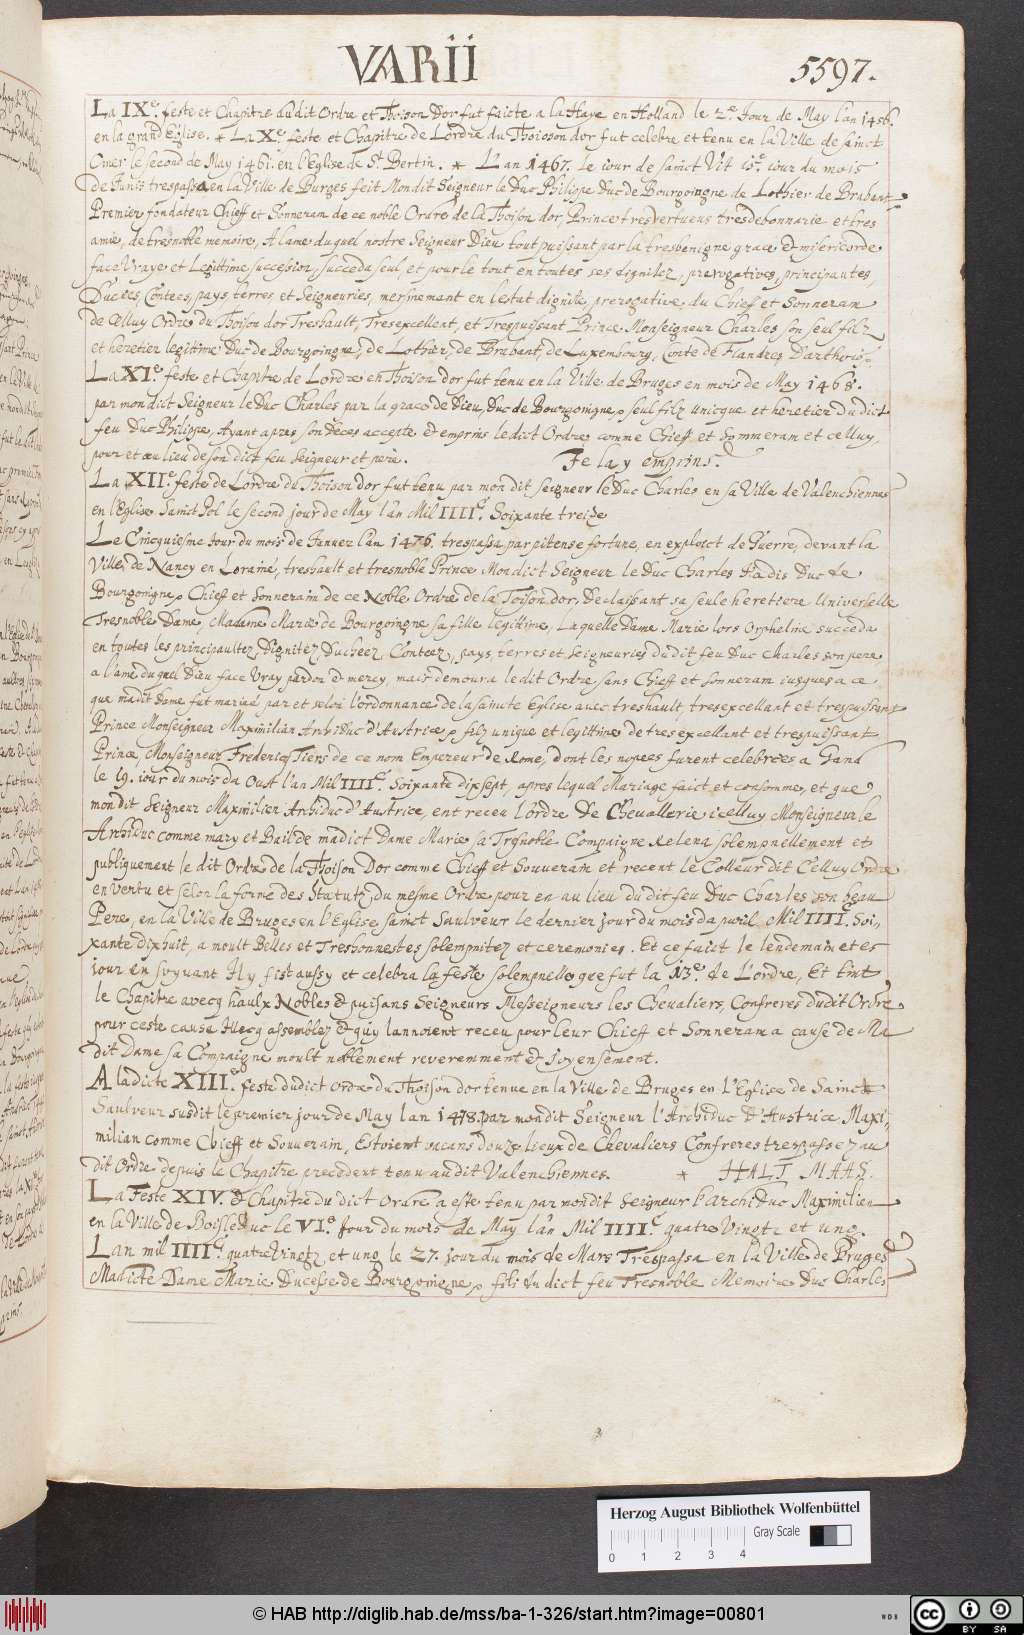 VARII
5597.
La IXe. feste et Chapitre dudit Ordre et Thoison Dor fut faicte a la Haye en Holland le 2e Jour de May lan 1456.
en la grand Eglise. * La Xe. feste et Chapitre de Lordre du Thoisson dor fut celebre et tenu en la Ville de sainct
Omer le second de May 1461. en l'Eglise de St. Bertin. * L'an 1467. le iour de sainct Vit 15e. iour du mois
de Junis trespassa en la Ville de Burges feit Mondit Seigneur le Duc Philippe Duc de Bourgoingne de Lothier de Brabant
Premier fondateur Chieff et Sonneram de ce noble Ordre de la Thoison dor, Prince tresvertueus tresdebonnarie et tres
amie, de tresnoble memoire, A lame duquel nostre Seigneur Dieu tout puissant par la tresbenigne grace & misericorde
face Vraye et Legittime succession, succeda seul, et pour le tout en toutes ses dignitez, prerogatives, principautes,
Ducees, Contees, pays, terres, et Seigneuries, mesmemant en lestat dignite, prerogative du Chief et Sonneram
de Celluy Ordre du Thoison dor Treshault, Tresexcellent, et Trespuissant Prince Monseigneur Charles son seul filz
et heretier legittime Duc de Bourgoingne, de Lothier, de Brabant, de Luxembourg, Conte de Flandres Darthois
La XIe. feste et Chapitre de Lordre en Thoison dor fut tenu en la Ville de Bruges en mois de May 1468.
par mon dict Seigneur le Duc Charles par la grace de Dieu, Duc de Bourgoingne, seul filz unicque et heretier du dict
feu Duc Philippe, Ayant apres son Deces accepte & emprins le dict Ordre comme Chieff et Sommeram et celluy
pour et au lieu de son dict feu Seigneur et pere. Je lay emprins.
La XIIe. feste de Lordre du Thoison dor fut tenu par mon dit seigneur le Duc Charles en sa Ville de Valenchiennes
en l'Eglise Sainct Pol le second jour de May lan Mil IIIIC. Soixante treize
Le Cincquiesme Jour du mois de Januez lan 1476. trespassa par pitense fortune, en exploict de Guerre, devant la
Ville de Nancy en Loraine, treshault et tresnoble Prince Mondict Seigneur le Duc Charles Jadis Duc de
Bourgongne, Chieff et Sonnerain de ce Noble Ordre de la Toison dor, Declaissant sa seule heretiere Universelle
Tresnoble Dame, Madame Marie de Bourgoingne sa fille legittime, Laquelle Dame Marie lors Orpheline succeda
en toutes les principaultez, Dignitez, Ducheez, Conteez, pays, terres et seigneuries dudit feu Duc Charles son pere
a l'ame duquel Dieu face Vray pardon & mercy, mais demoura le dit Ordre sans Chieff et sonneram iusques a ce
que madit Dame fut mariee par et selon l'ordonnance de la saincte Eglise avec treshault, tresexcellant et trespuissant
Prince Monseigneur Maximilian Archiduc d'Austrice, filz unique et legittime de tresexcellant et trespuissant
Prince, Monseigneur Frederiq Tiers de ce nom Empereur de Rome, dont les nopces furent celebrees a Gand
le 19. iour du mois da Oust l'an Mil IIIIC. Soixante dixsept, apres lequel Mariage faict, et consomme, et que
mondit Seigneur Maximilien Archiduc d'Austrice, ent receu l'ordre de Chevallerie icelluy Monseigneur le
Archiduc comme mary et Bail de madict Dame Marie sa Tresnoble Compaigne Releva solempnellement et
publiquement le dit Ordre de la Thoison Dor comme Chieff et Souveram et recent le Colleur dit Celluy Ordre
en vertu et selon la forme des Statutz du mesme Ordre pour en au lieu du dit feu Duc Charles son beau
Pere, en la Ville de Bruges en l'Eglise sainct Saulveur le dernier jour du mois da pvril Mil IIIIC. Soi-
xante dixhuit, a moult Belles et Treshonnestes solempnitez et ceremonies. Et ce faict le lendemain et es
jour en suyuant Ily fist aussy et celebra la feste solempnelle que fut la 13e. de L'ordre, Et tint
le Chapitre avecq haulx Nobles & puisans Seigneurs Messeigneurs les Chevaliers, Confreres dudit Ordre
pour ceste cause Illecq assemblez & quy lannoient receu pour leur Chieff et Sonneram a cause de Ma
dit Dame sa Compaigne moult noblement reveremment & Joyensement.
A ladicte XIIIe. feste dudict Ordre du Thoison dor tenue en la Ville de Bruges en l'Eglise de Sainct
Saulveur susdit le premier jour de May lan 1478. par mondit Seigneur l'Archiduc d'Austrice Maxi-
milian comme Chieff et Souveram, Estoient vacans douze lieux de Chevaliers Confreres trespassez au
dit Ordre depuis le Chapitre precedent tenu audit Valenchiennes. * HALT MAAS.
La Feste XIV. & Chapitre du dict Ordre a este tenu par mondit Seigneur l'archiduc Maximilien
en la Ville de Boisleduc le VIe. jour du mois de May lan Mil IIIIC quatre Vingtz et ung.
Lan mil IIIIC. quatre Vingtz et ung le 27. jour du mois de Mars Trespassa en la Ville de Bruges
Madicte Dame Marie Ducesse de Bourgoingne, fili du dict feu Tresnoble Memoire Duc Charles
3
Herzog August Bibliothek Wolfenbüttel
Gray Scale
0 1 2 3 4
© HAB http://diglib.hab.de/mss/ba-1-326/start.htm?image=00801
WDB
CC BY SA